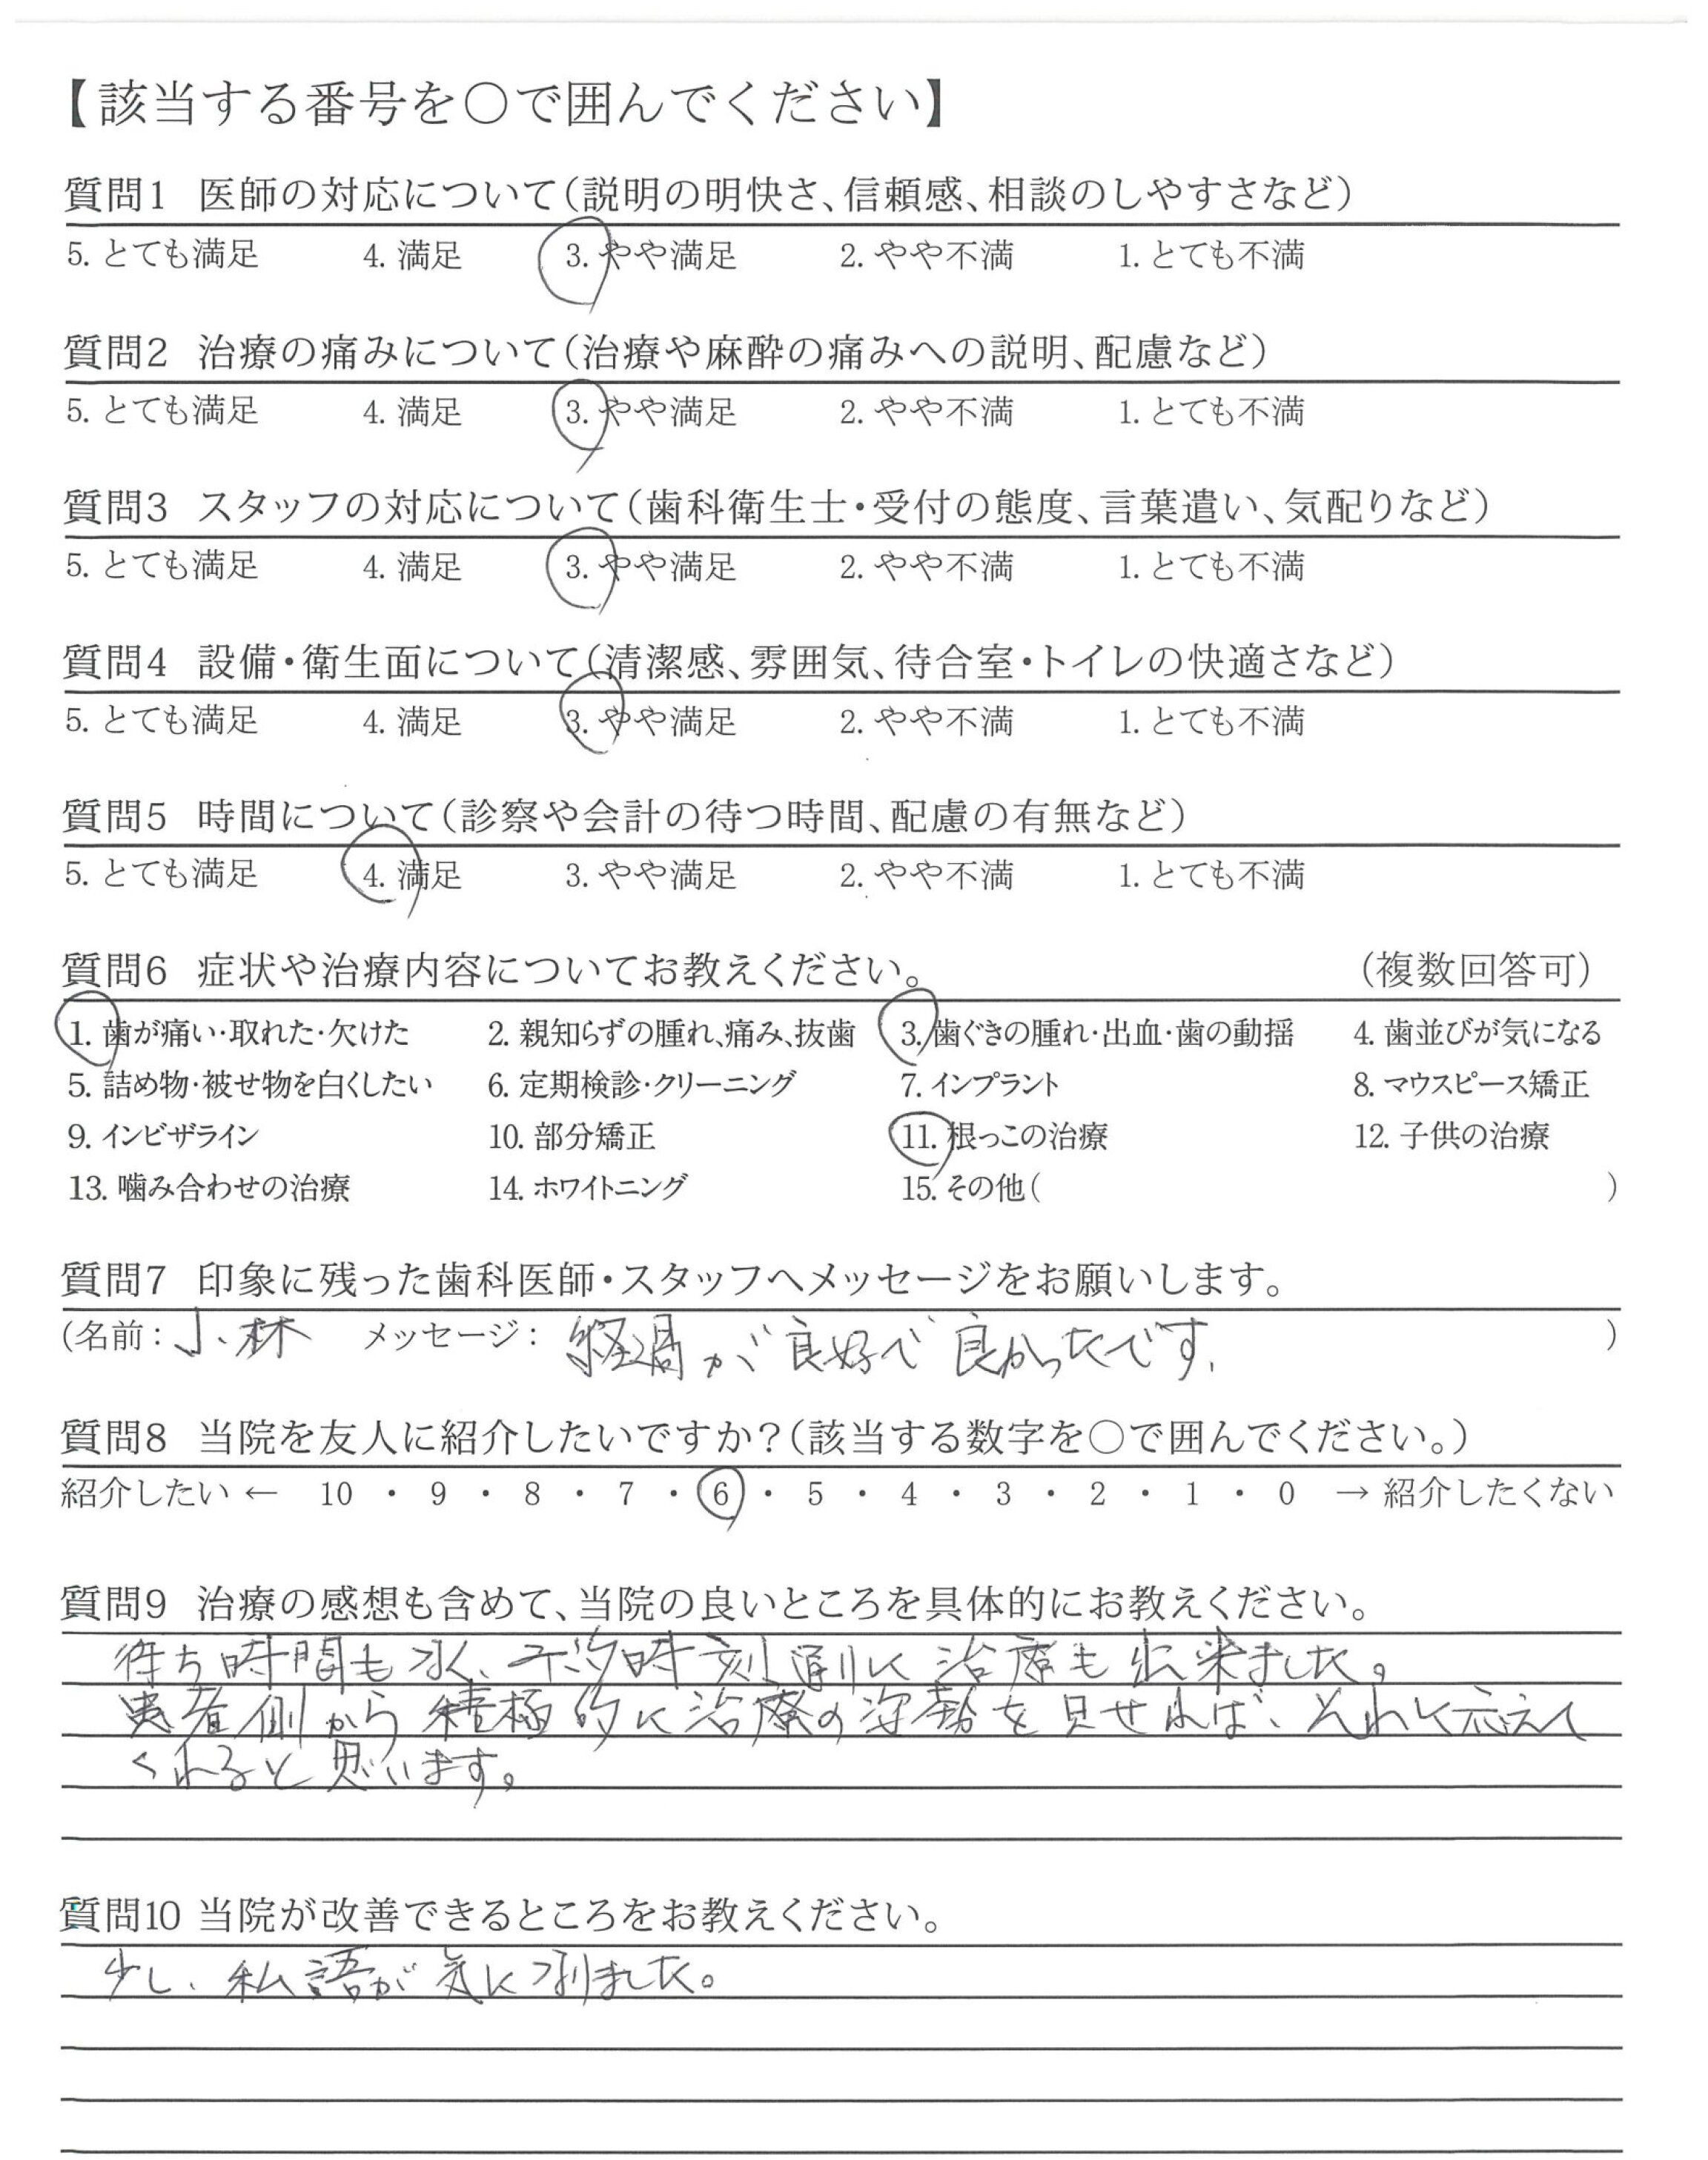 【該当する番号を〇で囲んでください】
質問1 医師の対応について(説明の明快さ、信頼感、相談のしやすさなど)
5. とても満足 4. 満足 3. やや満足 2. やや不満 1. とても不満
質問2 治療の痛みについて(治療や麻酔の痛みへの説明、配慮など)
5. とても満足 4. 満足 3. やや満足 2. やや不満 1. とても不満
質問3 スタッフの対応について(歯科衛生士・受付の態度、言葉遣い、気配りなど)
5. とても満足 4. 満足 3. やや満足 2. やや不満 1. とても不満
質問4 設備・衛生面について(清潔感、雰囲気、待合室・トイレの快適さなど)
5. とても満足 4. 満足 3. やや満足 2. やや不満 1. とても不満
質問5 時間について(診察や会計の待つ時間、配慮の有無など)
5. とても満足 4. 満足 3. やや満足 2. やや不満 1. とても不満
質問6 症状や治療内容についてお教えください。 (複数回答可)
1. 歯が痛い・取れた・欠けた 2. 親知らずの腫れ、痛み、抜歯 3. 歯ぐきの腫れ・出血・歯の動揺 4. 歯並びが気になる
5. 詰め物・被せ物を白くしたい 6. 定期検診・クリーニング 7. インプラント 8. マウスピース矯正
9. インビザライン 10. 部分矯正 11. 根っこの治療 12. 子供の治療
13. 噛み合わせの治療 14. ホワイトニング 15. その他( )
質問7 印象に残った歯科医師・スタッフへメッセージをお願いします。
(名前: 小林 メッセージ: 経過が良好で良かったです。 )
質問8 当院を友人に紹介したいですか?(該当する数字を〇で囲んでください。)
紹介したい ← 10 ・ 9 ・ 8 ・ 7 ・ 6 ・ 5 ・ 4 ・ 3 ・ 2 ・ 1 ・ 0 → 紹介したくない
質問9 治療の感想も含めて、当院の良いところを具体的にお教えください。
待ち時間も、予約時刻通りに治療も出来ました。
患者側から積極的に治療の姿勢を見せれば、それに応えて
くれると思います。
質問10 当院が改善できるところをお教えください。
少し、私語が気になりました。